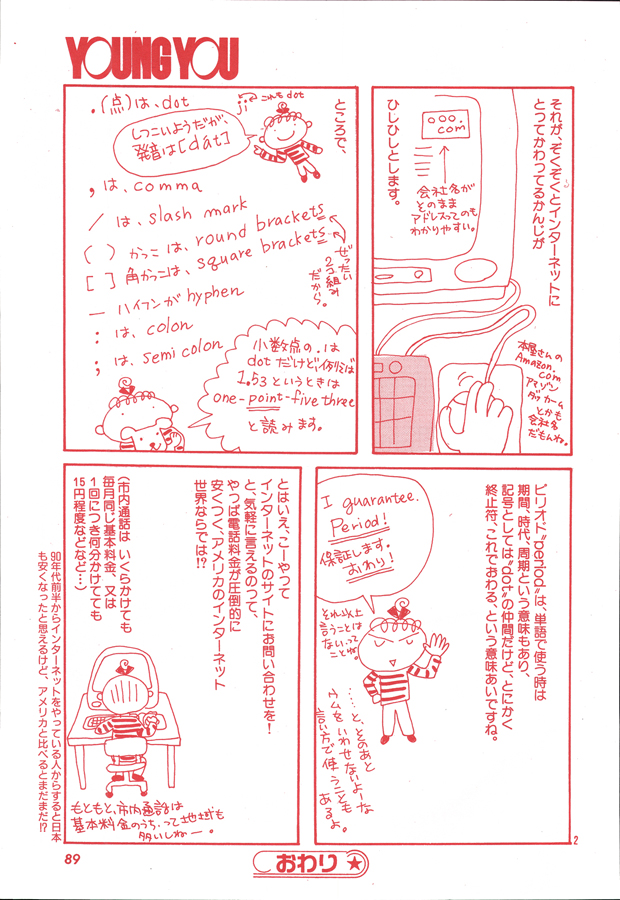 YOUNG YOU
それが、ぞくぞくとインターネットに
とってかわってるかんじが
ひしひしとします。
ooo.
com
会社名が
そのまま
アドレスってのも
わかりやすい。
本屋さんの
Amazon.
com
アマゾン
ダッカーム
とかも
会社名
だもんね。
ところで、
.(点)は、dot
これもdot
ji
しつこいようだが、
発音は[dát]
, は、comma
/ は、slash mark
( ) かっこは、round brackets
[ ] 角かっこは、square brackets
ぜったい
2コ組み
だから。
― ハイフンがhyphen
: は、colon
; は、semi colon
小数点の . は
dotだけど、例えば
1.53というときは
one-point-five three
と読みます。
ピリオド"period"は、単語で使う時は
期間、時代、周期という意味もあり、
記号としては"dot"の仲間だけど、とにかく
終止符、これでおわる、という意味あいですね。
I guarantee.
Period!
保証します。
おわり!
それ以上
言うことは
ないって
ことね。
……と、そのあと
ウムをいわせないよーな
言い方で使うことも
あるよ。
とはいえ、こーやって
インターネットのサイトにお問い合わせを!
と、気軽に言えるのって、
やっぱ電話料金が圧倒的に
安くつく、アメリカのインターネット
世界ならでは!?
(市内通話は いくらかけても
毎月同じ基本料金、又は
1回につき何分かけても
15円程度などなど…)
もともと、市内通話は
基本料金のうち、って地域も
多いしねー。
90年代前半からインターネットをやっている人からすると日本
も安くなったと思えるけど、アメリカと比べるとまだまだ!?
2
おわり
89